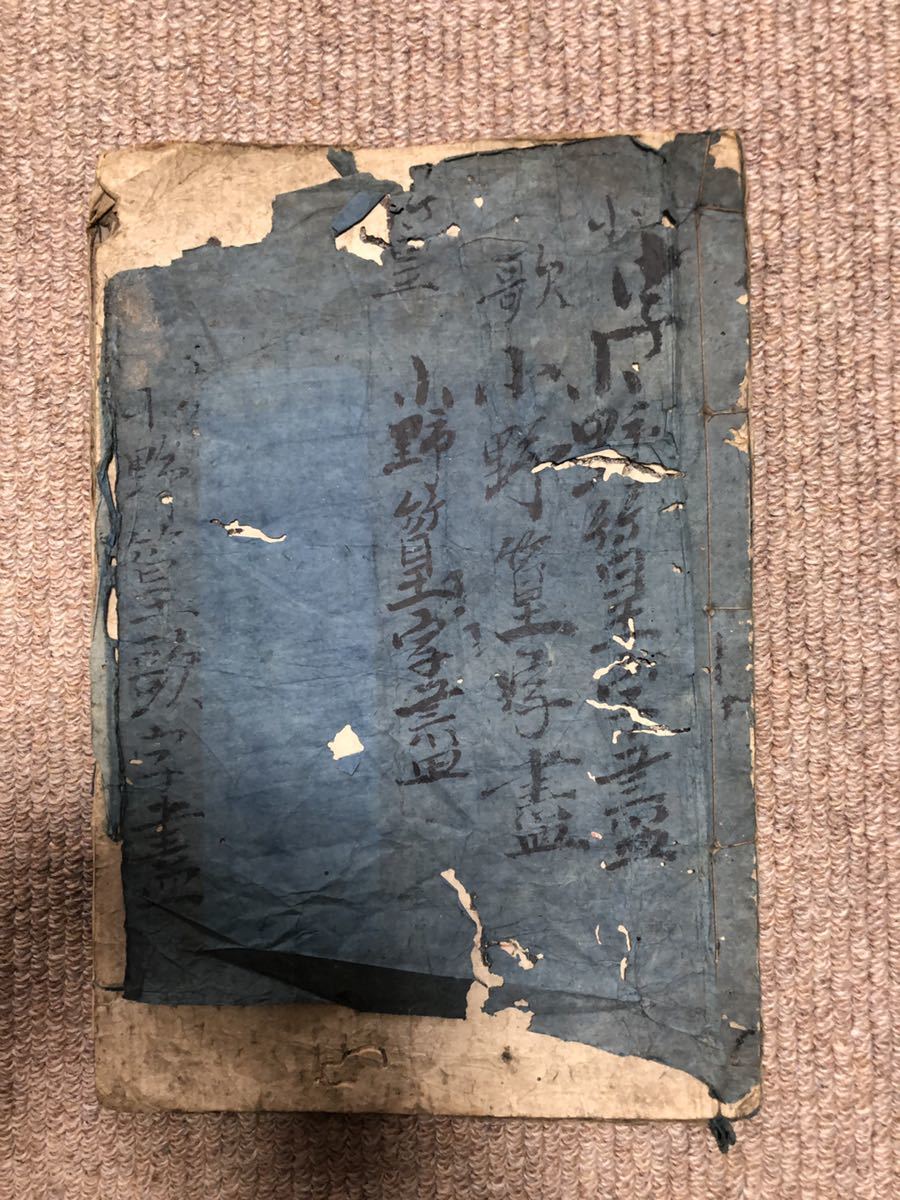 小字
小野篁字盡
歌
小野篁字盡
篁
小野篁字盡
小野篁歌字盡